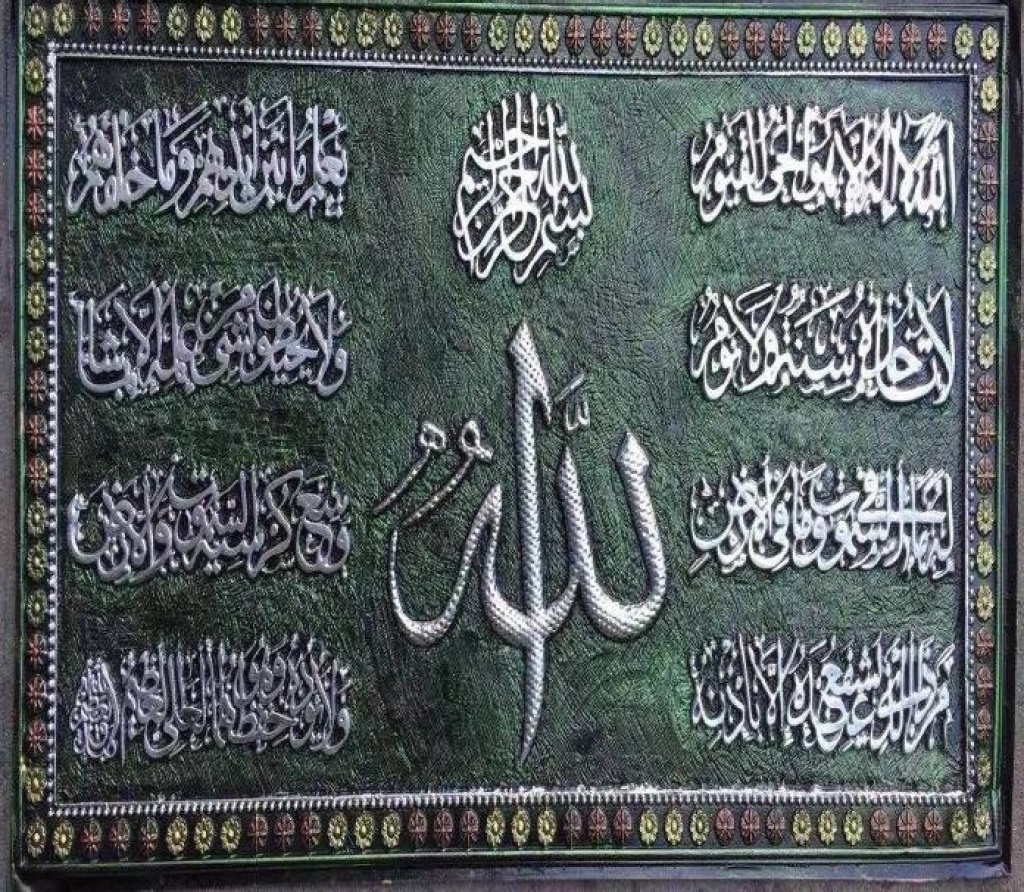 بسم الله الرحمن الرحيم
الله لا إله إلا هو الحي القيوم
لا تأخذه سنة ولا نوم
له ما في السموات وما في الأرض
من ذا الذي يشفع عنده إلا بإذنه
يعلم ما بين أيديهم وما خلفهم
ولا يحيطون بشيء من علمه إلا بما شاء
وسع كرسيه السموات والأرض
ولا يؤده حفظهما وهو العلي العظيم
الله